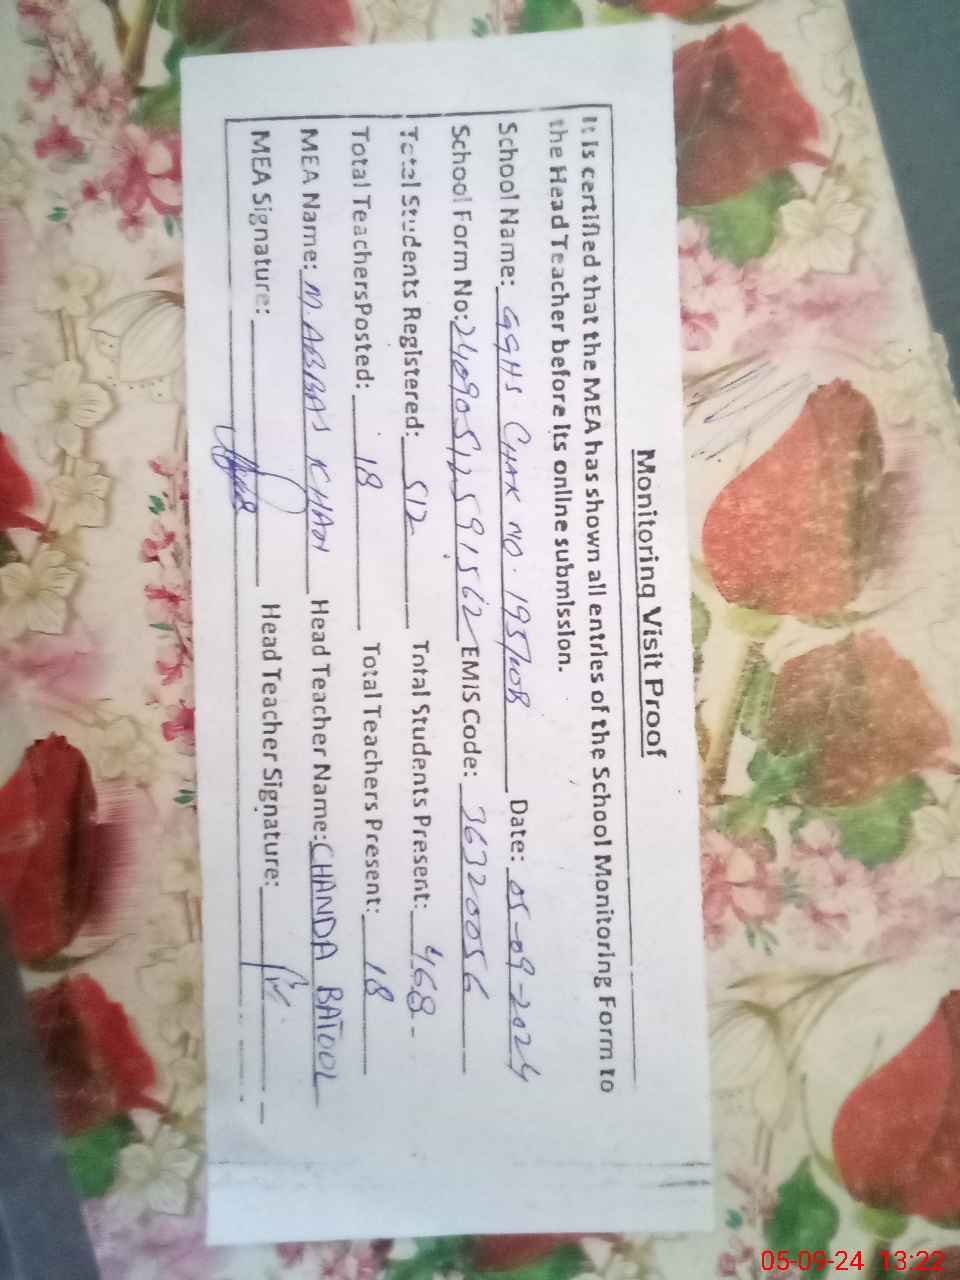 Monitoring Visit Proof
It is certified that the MEA has shown all entries of the School Monitoring Form to
the Head Teacher before its online submission.
School Name: GGHS CHAK NO. 195/WB Date: 05-09-2024
School Form No: 24090512591562 EMIS Code: 36320056
Total Students Registered: 512 Total Students Present: 468
Total TeachersPosted: 18 Total Teachers Present: 18
MEA Name: M. ABBAS KHAN Head Teacher Name: CHANDA BATOOL
MEA Signature: Head Teacher Signature:
05-09-24 13:22